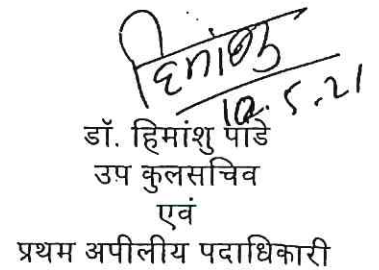 हिमांशु
10.5.21
डॉ. हिमांशु पांडे
उप कुलसचिव
एवं
प्रथम अपीलीय पदाधिकारी